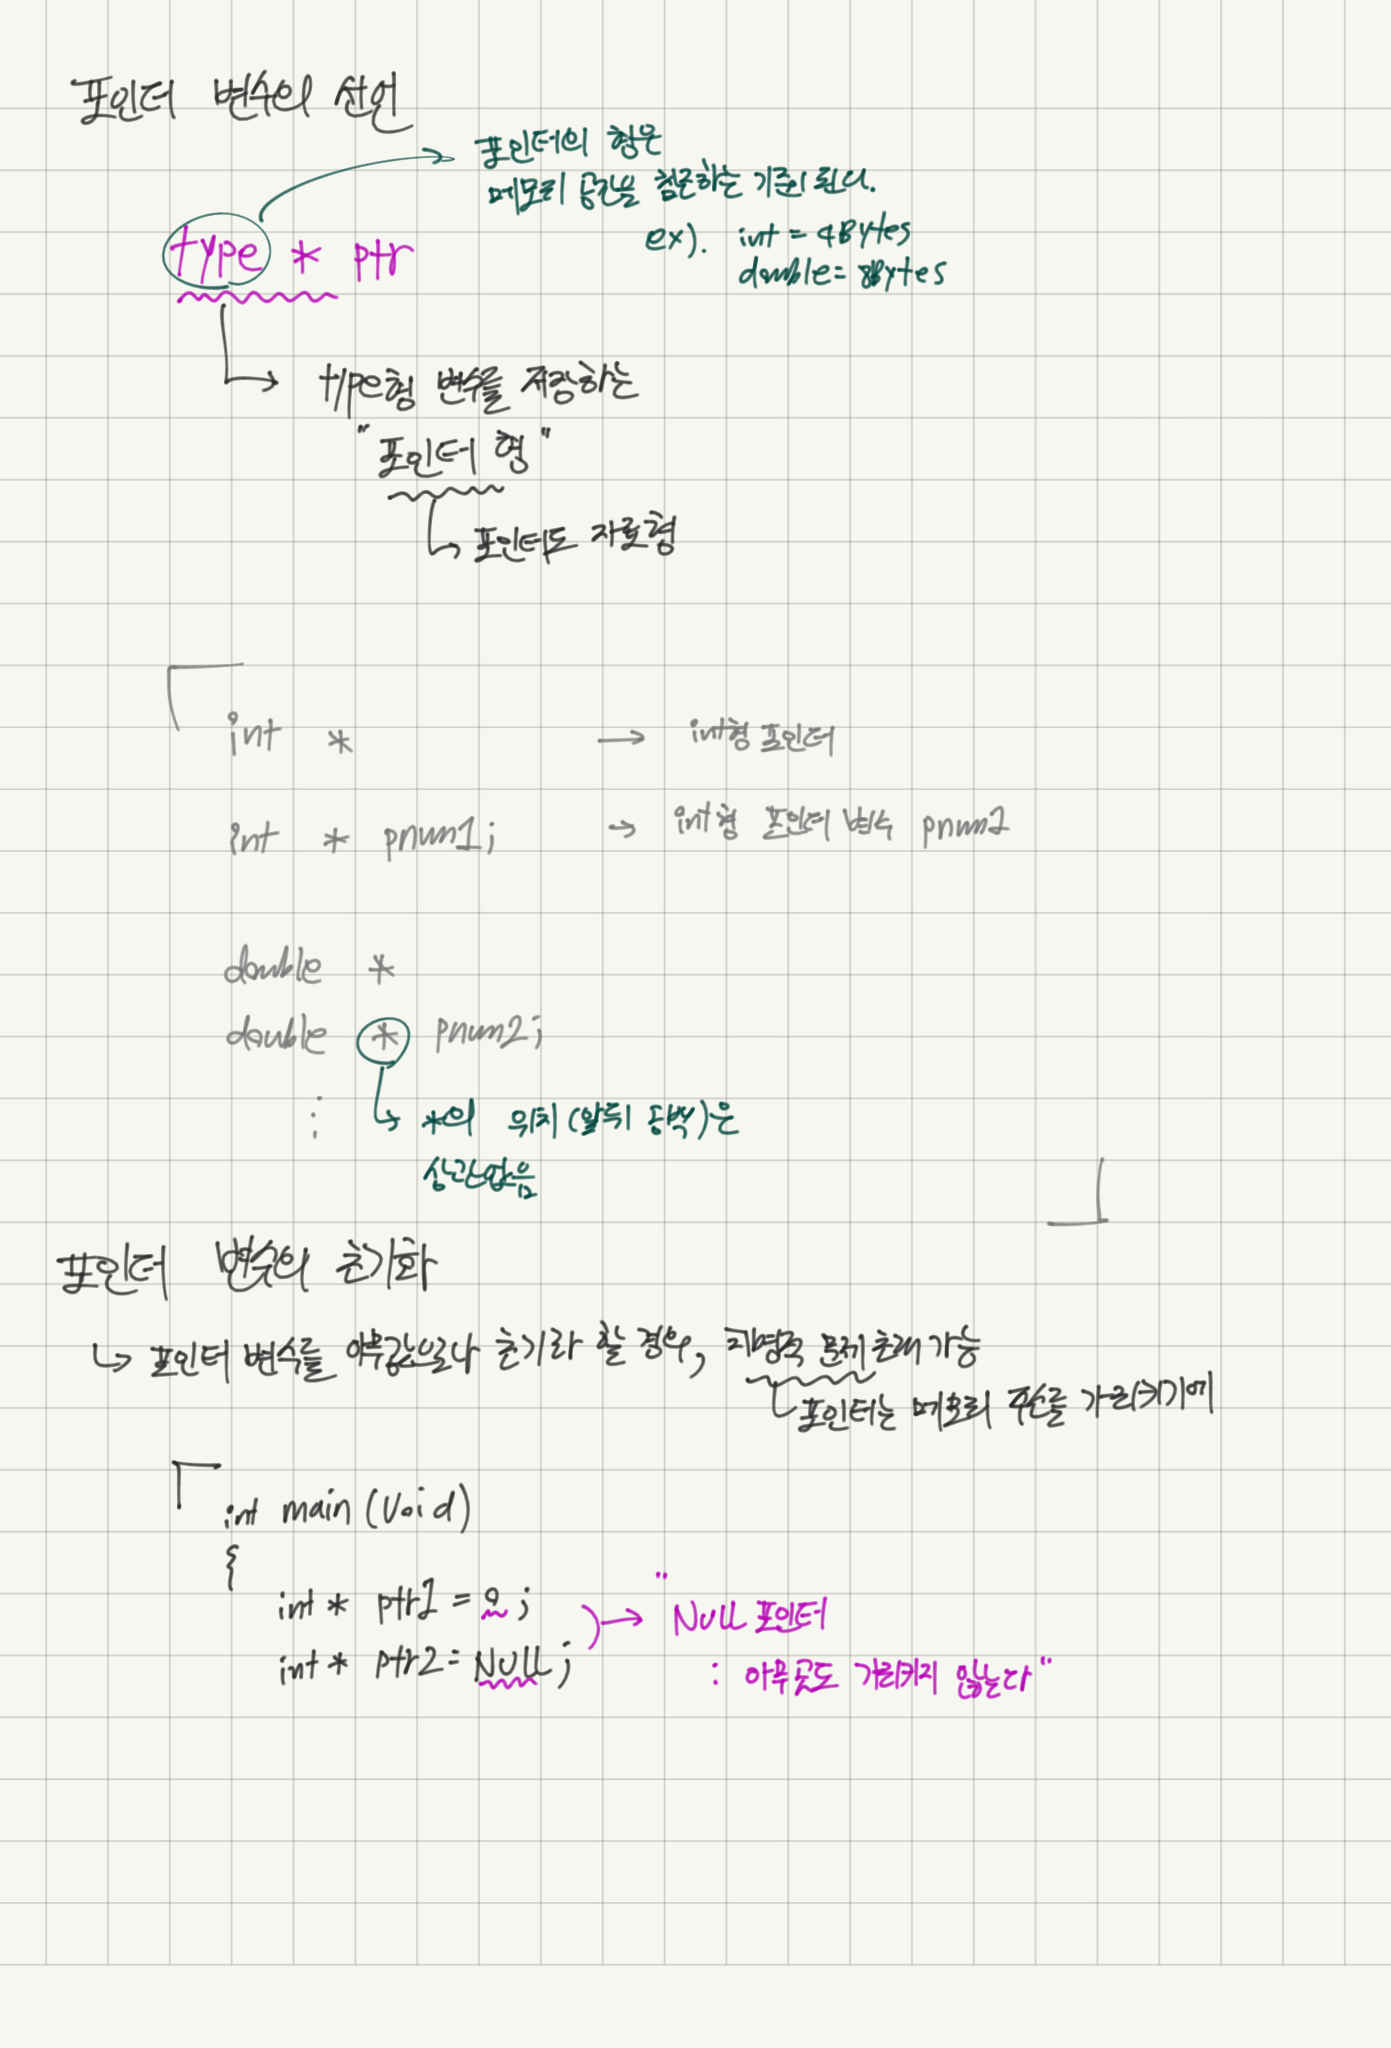 포인터 변수의 선언
포인터의 형은
메모리 공간을 참조하는 기준이 된다.
type * ptr
ex). int = 4Bytes
double = 8Bytes
type형 변수를 저장하는
"포인터 형"
포인터도 자료형
int * → int형 포인터
int * pnum1; → int형 포인터 변수 pnum1
double *
double * pnum2;
⋮
*의 위치(앞뒤 공백)은
상관없음
포인터 변수의 초기화
포인터 변수를 아무값으로나 초기화 할 경우, 치명적 문제 초래 가능
포인터는 메모리 주소를 가리키기에
int main (void)
{
int * ptr1 = 0;
int * ptr2 = NULL;
"NULL 포인터
: 아무곳도 가리키지 않는다"